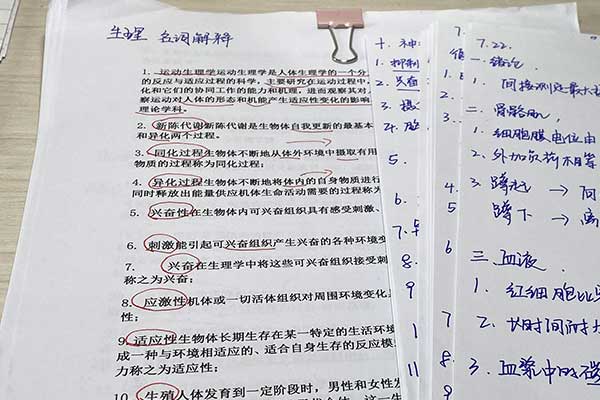 生理 名词解释
1. 运动生理学运动生理学是人体生理学的一个分
的反应与适应过程的科学，主要研究在运动过程中，
化和它们的协同工作的能力和机理，进而观察其对人
察运动对人体的形态和机能产生适应性变化的影响
理论学科。
2. 新陈代谢新陈代谢是生物体自我更新的最基本
和异化两个过程。
3. 同化过程生物体不断地从体外环境中摄取有用
物质的过程称为同化过程；
4. 异化过程生物体不断地将体内的自身物质进行
同时释放出能量供应机体生命活动需要的过程称为
5. 兴奋性在生物体内可兴奋组织具有感受刺激、
6. 刺激能引起可兴奋组织产生兴奋的各种环境变
7. 兴奋在生理学中将这些可兴奋组织接受刺
称之为兴奋；
8. 应激性机体或一切活体组织对周围环境变化
性；
9. 适应性生物体长期生存在某一特定的生活环境
成一种与环境相适应的、适合自身生存的反应模
力称之为适应性；
10. 生殖人体发育到一定阶段时，男性和女性发
十. 神
1. 抑制
2. 兴奋
3. 摄
4.
5.
6.
7.
8.
9
1
11
7.
1.
2.
3.
4.
5
6
7
8.
9
7.22.
一. 绪论
1. 间接测定最大
二. 骨骼肌
1. 细胞膜电位由
2. 外加负荷相等
3. 蹲起 → 向
蹲下 → 离
三. 血液
1. 红细胞比
2. 长时间耐
3. 血浆中的